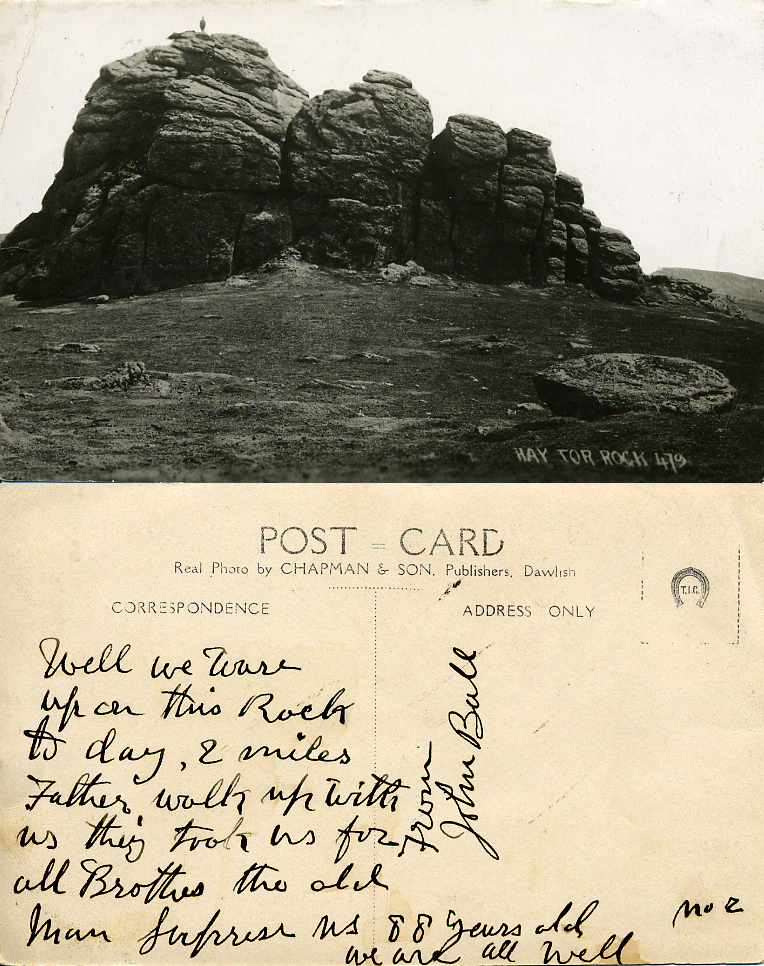 HAY TOR ROCK 479
POST = CARD
Real Photo by CHAPMAN & SON, Publishers, Dawlish
T.I.C.
CORRESPONDENCE
ADDRESS ONLY
Well we ware
up on this Rock
to day, 2 miles
Father walk up with
us they took us for
all Brothes the old
Man Surprise us 88 years old
we are all well
From
John Ball
no 2